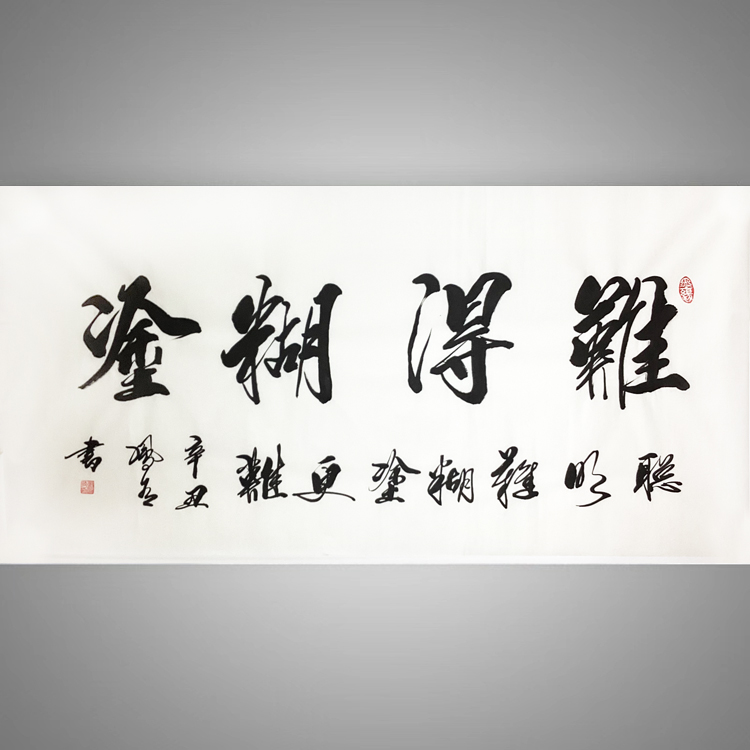 難得糊塗
聪明難糊塗更難
辛丑
書